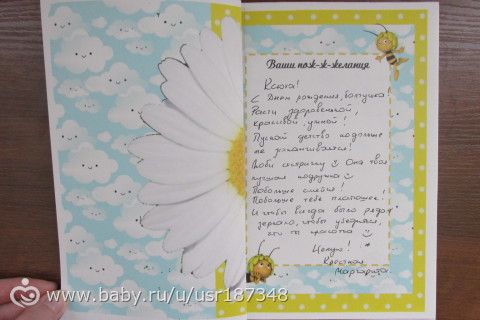 Ваши пож-ж-желания
Ксюха!
С Днем рождения,
Расти здоровенькой,
красивой, умной!
Пускай детство подольше
не заканчивается!
Люби сестричку ☺ Она твоя
лучшая подружка ☺
Побольше смейся!
Побольше тебе платюшек!
И чтобы всегда было рядом
зеркало, чтобы убедиться,
что ты красотка ☺
Целую!
Крестная
Маргарита
www.baby.ru/u/usr187348